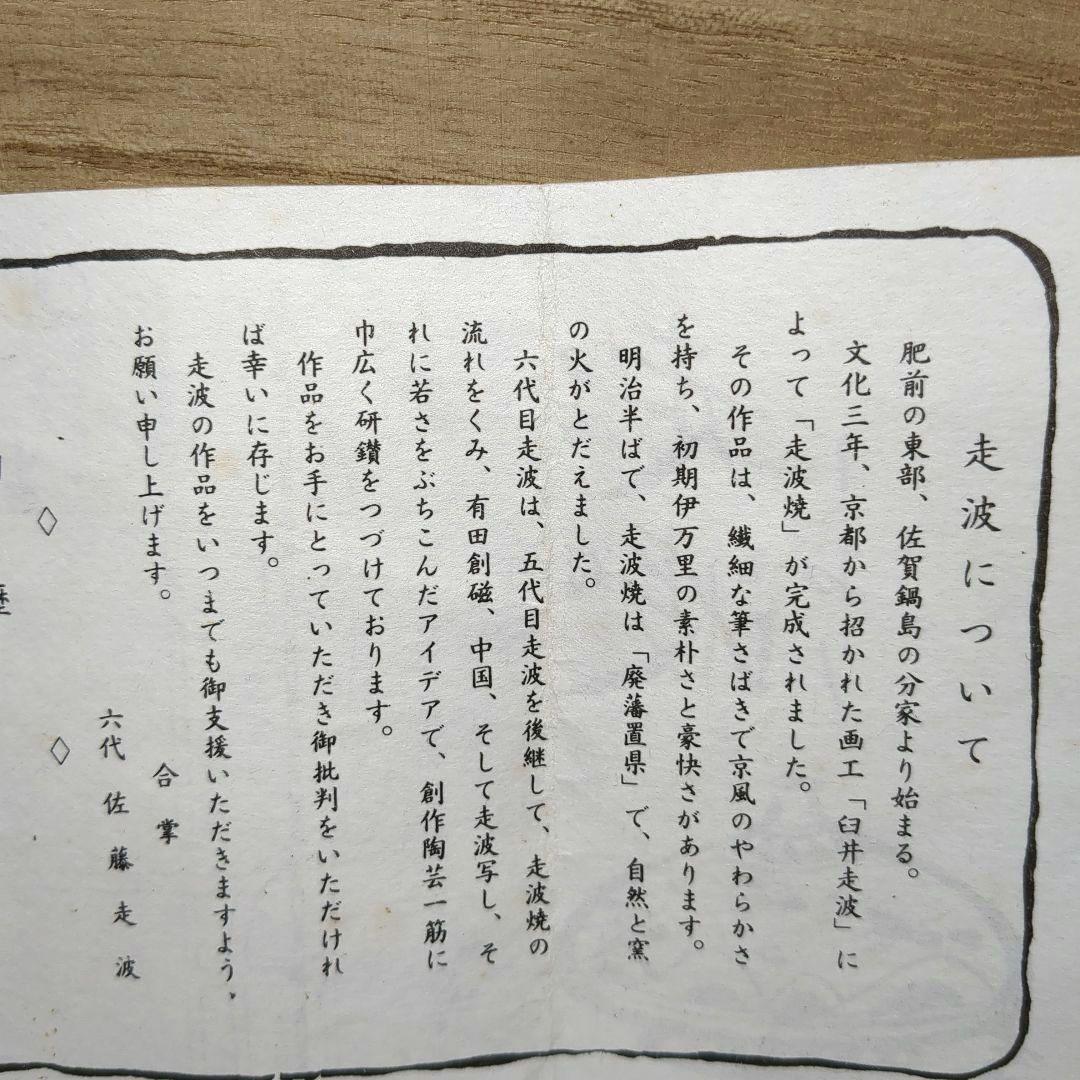 走波について
肥前の東部、佐賀鍋島の分家より始まる。
文化三年、京都から招かれた画工「臼井走波」に
よって「走波焼」が完成されました。
その作品は、繊細な筆さばきで京風のやわらかさ
を持ち、初期伊万里の素朴さと豪快さがあります。
明治半ばで、走波焼は「廃藩置県」で、自然と窯
の火がとだえました。
六代目走波は、五代目走波を後継して、走波焼の
流れをくみ、有田創磁、中国、そして走波写し、そ
れに若さをぶちこんだアイデアで、創作陶芸一筋に
巾広く研鑽をつづけております。
作品をお手にとっていただき御批判をいただけれ
ば幸いに存じます。
走波の作品をいつまでも御支援いただきますよう、
お願い申し上げます。
合掌
六代 佐藤走波